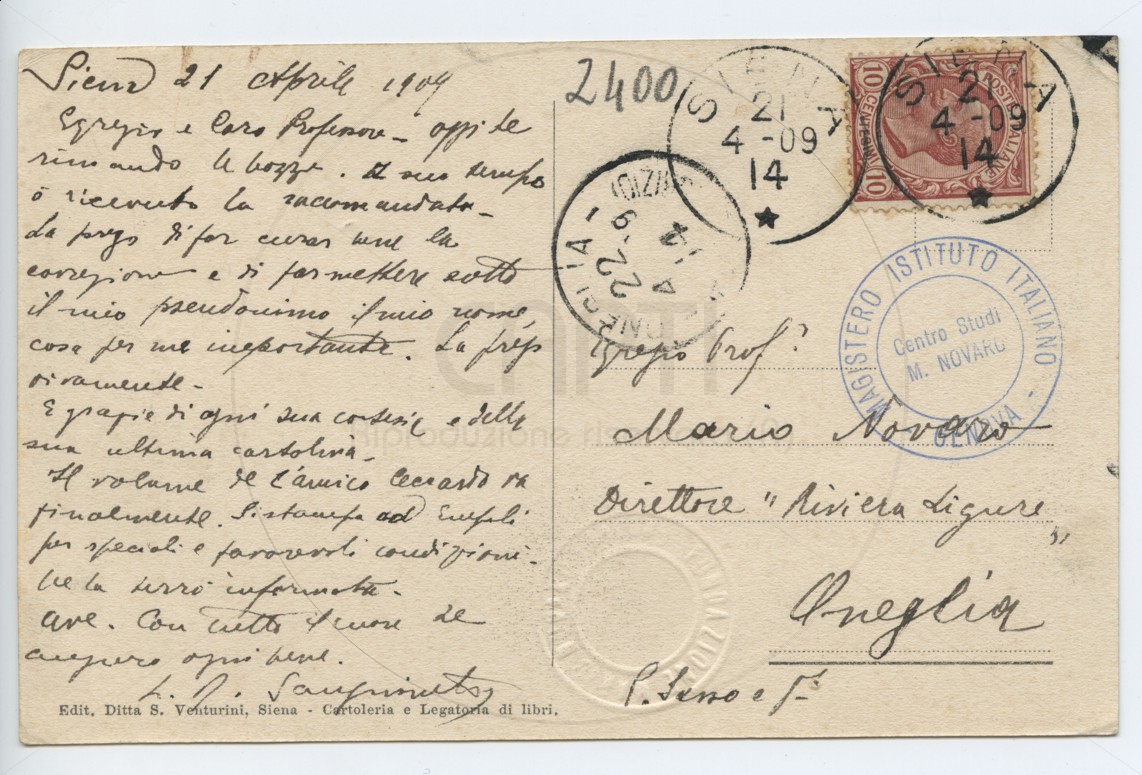 Siena 21 Aprile 1909
Egregio e Caro Professore - oggi Le
rimando le bozze. A suo tempo
ò ricevuto la racomandata -
La prego di far curar bene la
correzione e di far mettere sotto
il mio pseudonimo il mio nome,
cosa per me importante. La prego
vivamente -
E grazie di ogni sua cortesia e della
sua ultima cartolina -
Il volume de l'amico Ceccardo va
finalmente. Si stampa ad Empoli
per speciali e favorevoli condizioni.
Ne la terrò informata -
Ave. Con tutto il cuore Le
auguro ogni bene.
Edit. Ditta S. Venturini, Siena - Cartoleria e Legatoria di libri.
2400
SIENA
21
4 - 09
14
SIENA
21
4 - 09
14
POSTE ITALIANE
10 CENTESIMI 10
22
4
14
MAGISTERO ISTITUTO ITALIANO - GENOVA -
Centro Studi
M. NOVARO
Egregio Prof.
Mario Novaro
Direttore "Riviera Ligure"
Oneglia
P. Sasso e Fi